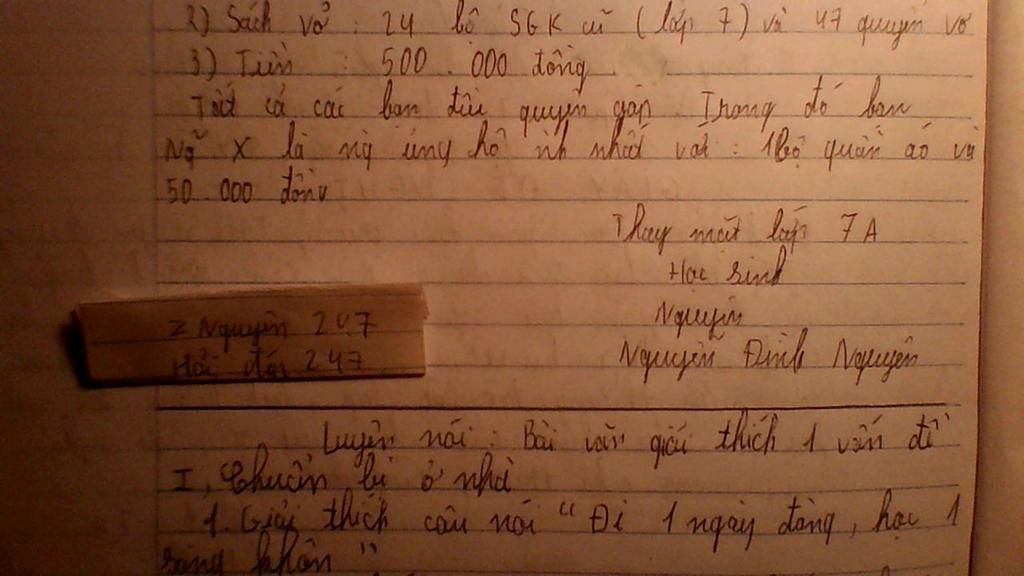 2) Sách vở : 24 bộ SGK cũ (lớp 7) và 47 quyển vở
3) Tiền : 500.000 đồng
Tất cả các bạn đều quyên góp. Trong đó bạn
Ng~ X là ng ủng hộ nh nhất với : 1 bộ quần áo và
50.000 đồng
Thay mặt lớp 7A
Học sinh
Nguyên
Nguyễn Đình Nguyên
Z Nguyên 247
Hỏi đáp 247
Luyện nói : Bài văn giải thích 1 vấn đề
I, Chuẩn bị ở nhà
1. Giải thích câu nói "Đi 1 ngày đàng, học 1
sàng khôn"